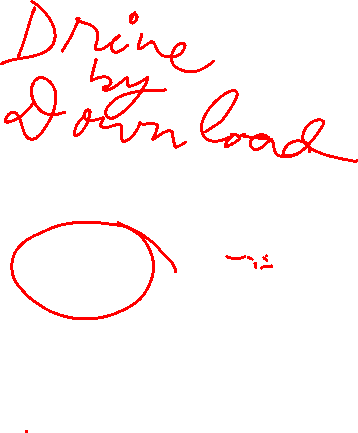 Drive
by
Download